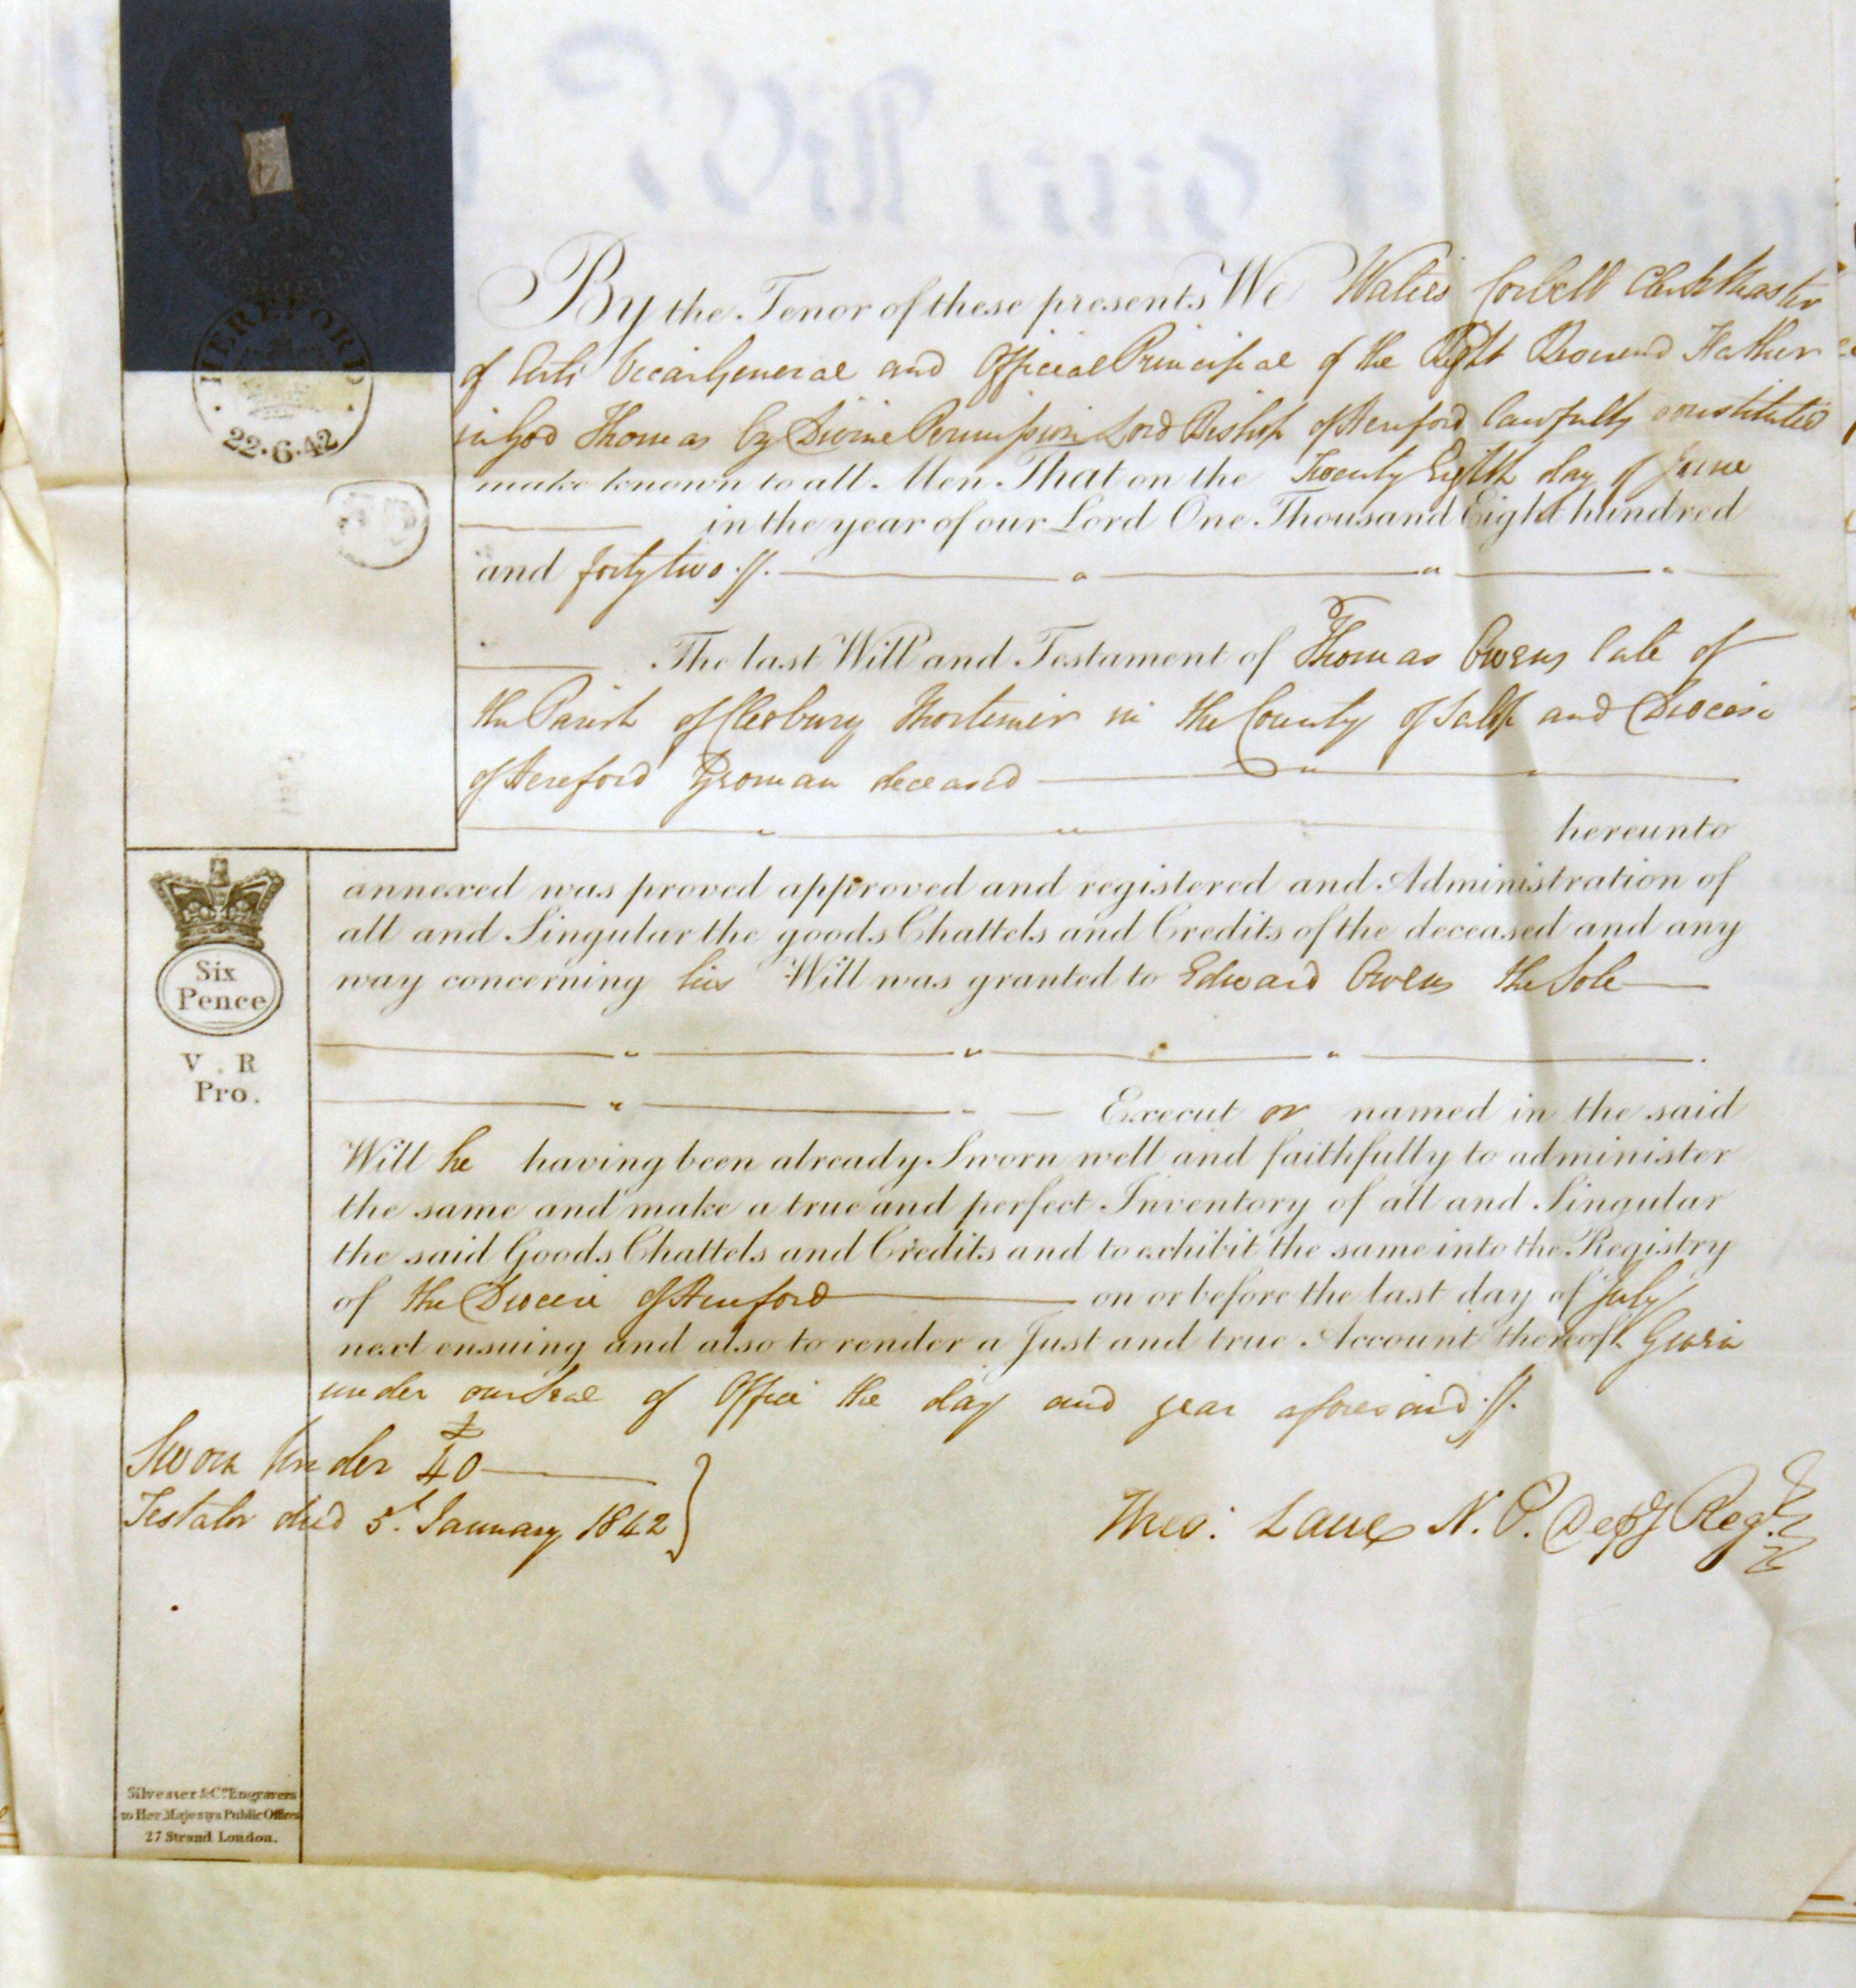 HEREFORD
22.6.42
By the Tenor of these presents We Waties Corbett Clerk Master
of Arts Vicar General and Official Principal of the Right Reverend Father
in God Thomas by Divine Permission Lord Bishop of Hereford lawfully constituted
make known to all Men That on the Twenty Eighth day of June
in the year of our Lord One Thousand Eight hundred
and forty two
The last Will and Testament of Thomas Owens late of
the Parish of Cleobury Mortimer in the County of Salop and Diocese
of Hereford Yeoman deceased
hereunto
annexed was proved approved and registered and Administration of
all and Singular the goods Chattels and Credits of the deceased and any
way concerning his Will was granted to Edward Owens the Sole
Execut or named in the said
Will he having been already Sworn well and faithfully to administer
the same and make a true and perfect Inventory of all and Singular
the said Goods Chattels and Credits and to exhibit the same into the Registry
of the Diocese of Hereford on or before the last day of July
next ensuing and also to render a Just and true Account thereof. Given
under our Seal of Office the day and year aforesaid
Six
Pence
V . R
Pro.
Sworn Under £40
Testator died 5th January 1842
Theo: Lane N. P. Depy Regr
Silvester & Co. Engravers
to Her Majestys Public Offices
27 Strand London.